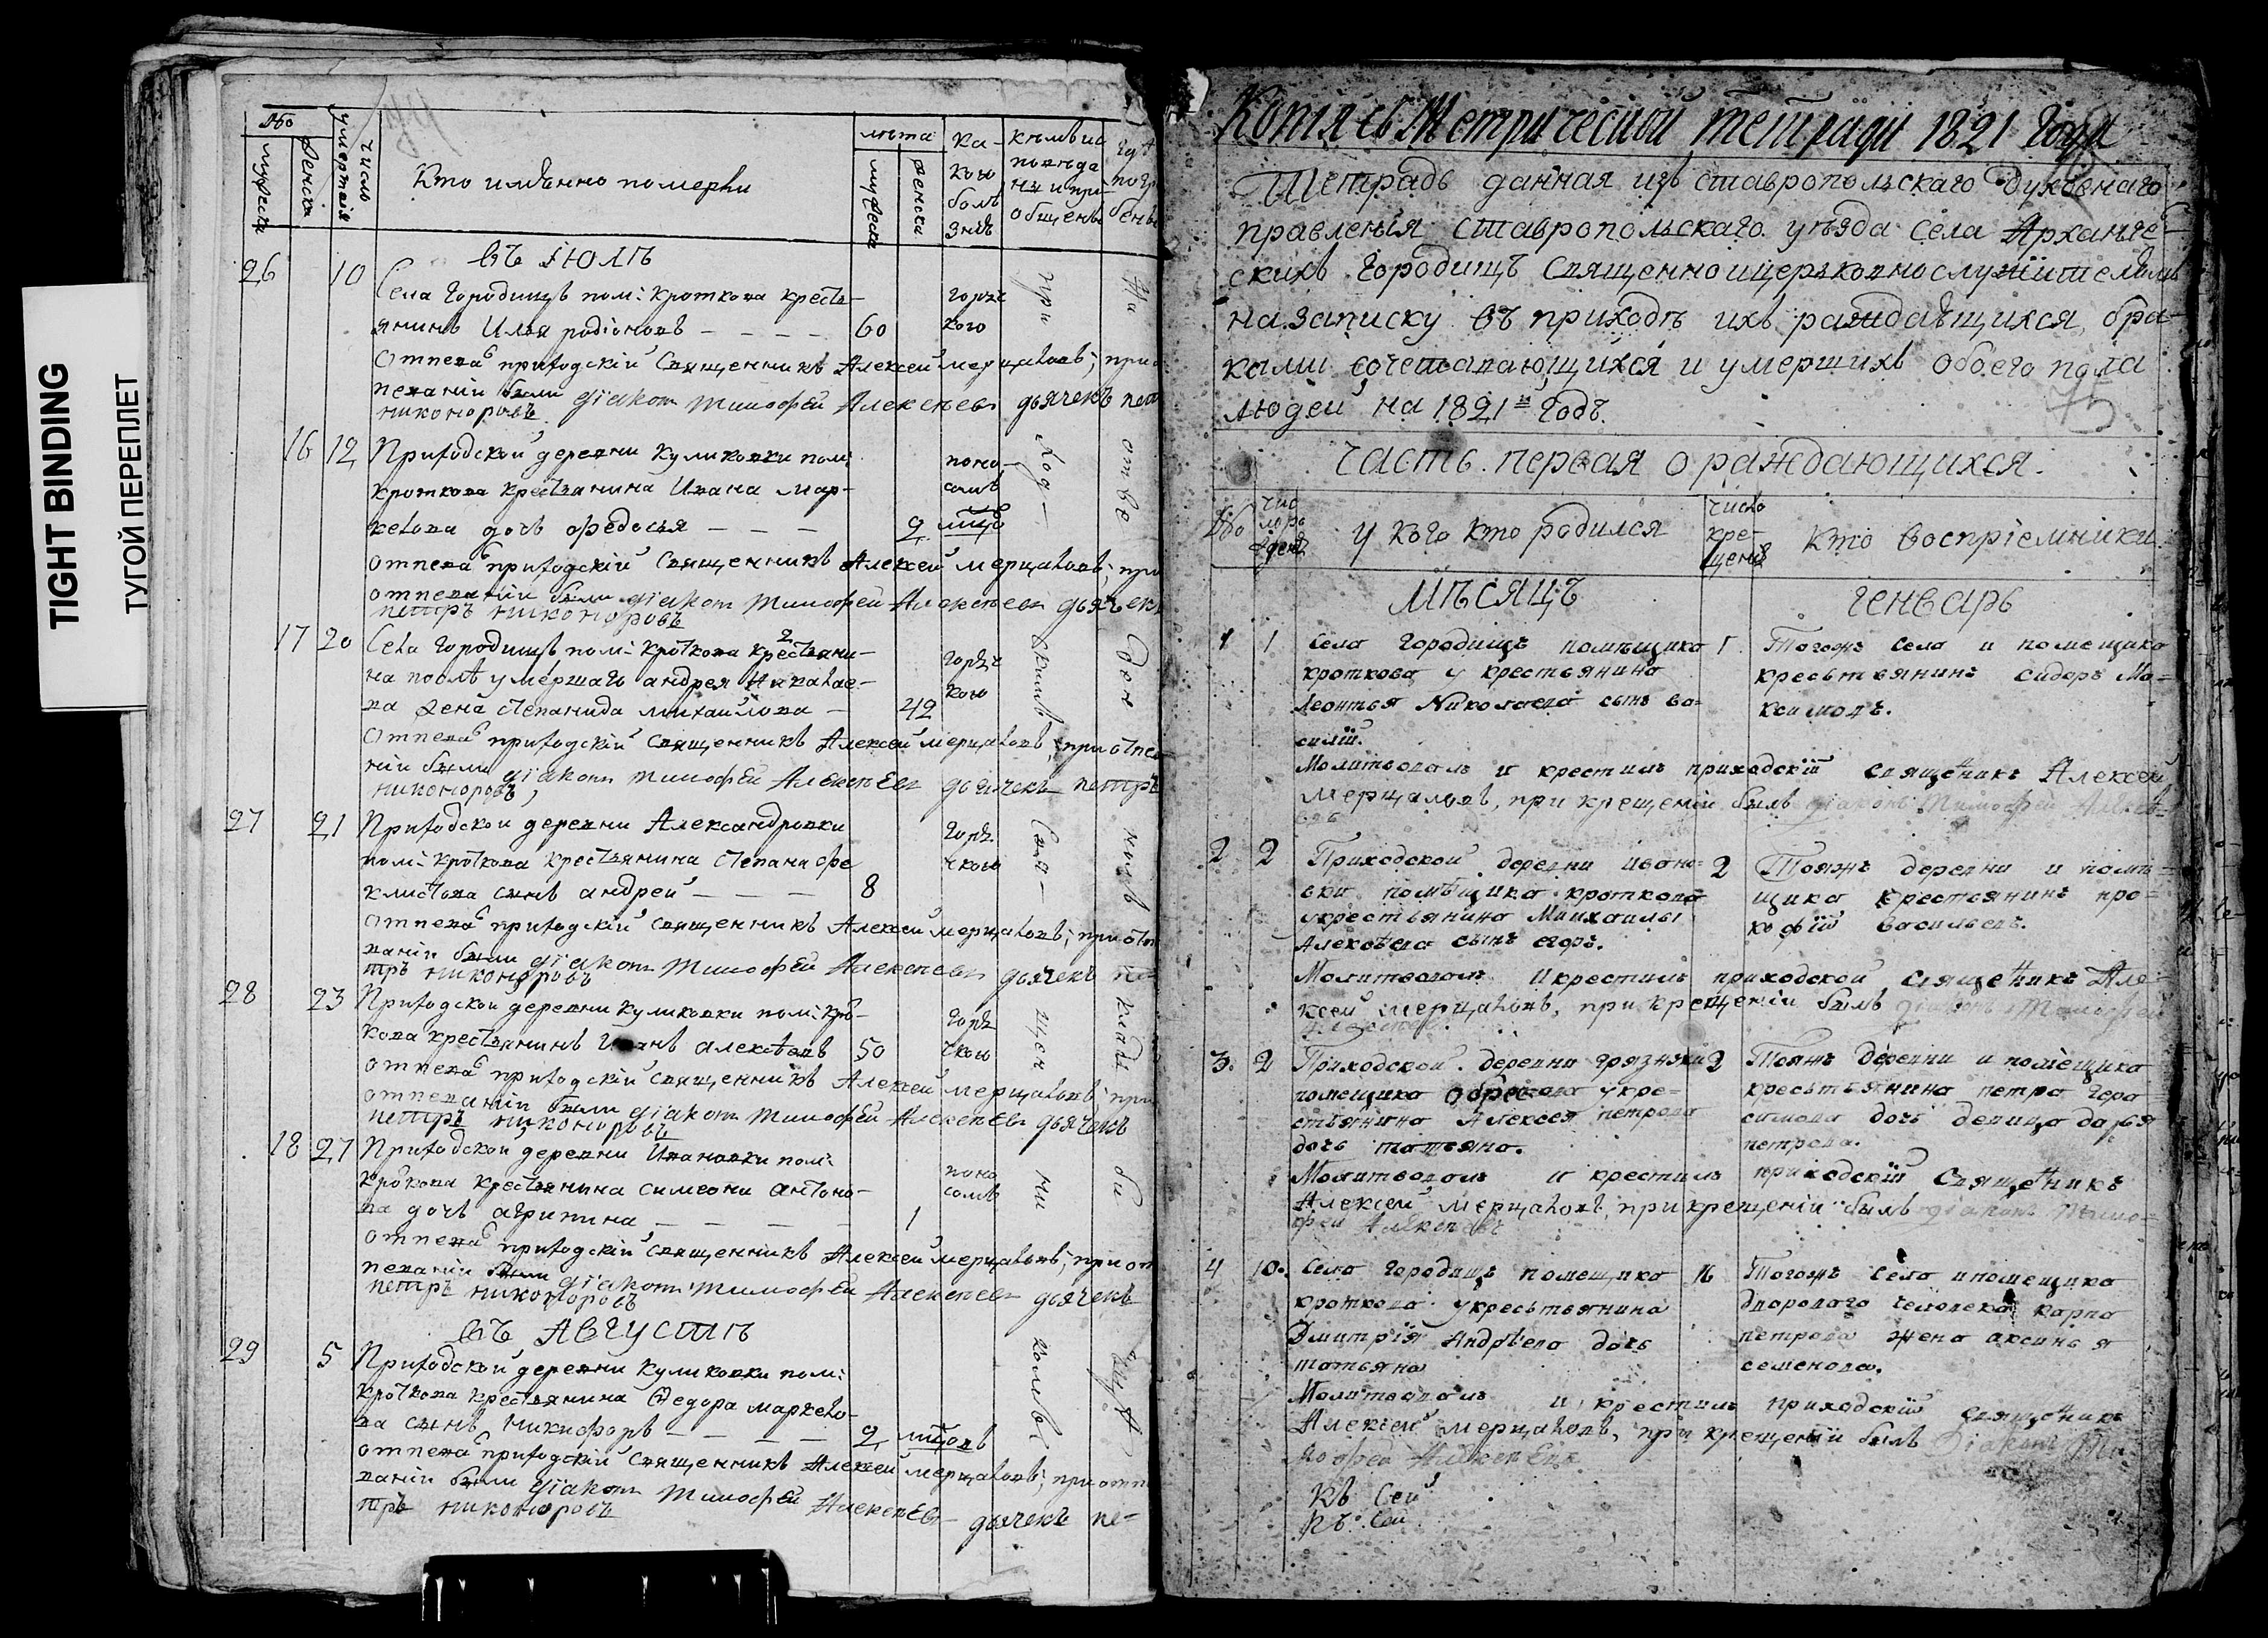 TIGHT BINDING
ТУГОЙ ПЕРЕПЛЕТ
№
мужеска
женска
число умертвія
Кто имѣнно померли
лѣта
мужеска
женска
Ка-
кою
болѣ
знѣ
кѣмъ ис
повѣда
ны и при-
общены
гдѣ
погр
бены
въ ІЮЛѢ
26 10 Села Городищъ пом: Кроткова кресть-
янинъ Илья родіоновъ — — — 60 горяч кого
отпевалъ приходскій Священникъ Алексей мерцаловъ; при о
певаніи были діаконъ Тимофей Алексѣевъ дьячекъ пет
никоноровъ
16 12 Приходской деревни куликовки пом:
кроткова крестьянина Ивана мар-
келова дочь федосья — — — 2 поно- сомъ мцъ
отпевалъ приходскій Священникъ Алексей мерцаловъ; при
отпеваніи были діаконъ Тимофей Алексѣевъ дьячекъ
петръ никоноровъ
17 20 Села Городищъ пом: Кроткова крестьяни-
на послѣ умершаго андрея Николае-
ва жена степанида михайлова — 42 горяч кою
отпевалъ приходскій священникъ Алексей мерцаловъ; при отпева
ніи были діаконъ Тимофей Алексѣевъ дьячекъ петръ
никоноровъ,
27 21 Приходской деревни Александровки
пом: кроткова крестьянина степана фе
клистова сынъ андрей — — — 8 горя чкою
отпевалъ приходскій священникъ Алексей мерцаловъ; при отпе
ваніи были діаконъ Тимофей Алексѣевъ дьячекъ пе-
тръ никоноровъ
28 23 Приходской деревни куликовки пом: Кро-
кова крестьянинъ Иванъ алексѣевъ 50 горя чкою
отпевалъ приходскій священникъ Алексей мерцаловъ; при
отпеваніи были діаконъ Тимофей Алексѣевъ дьячекъ
петръ никоноровъ
18 27 Приходской деревни Ивановки пом:
крокова крестьянина симеона антоно-
ва дочь агрипина — — — — 1 поно сомъ
отпевалъ приходскій священникъ Алексей мерцаловъ; при от
певаніи были діаконъ Тимофей Алексѣевъ дьячекъ
петръ никоноровъ
въ АВГУСТѢ
29 5 Приходской деревни куликовки пом:
кроткова крестьянина Федора маркело-
ва сынъ никифоръ — — — — 2 мцовъ
отпевалъ приходскій священникъ Алексей мерцаловъ; при отпе
ваніи были діаконъ Тимофей Алексѣевъ дьячекъ пе-
тръ никоноровъ
при
ход-
скимъ
Свя-
щен
ни
комъ
На
отво
дон
номъ
клад
би
щѣ
Копія съ Метрической тетради 1821 Года
Тетрадь данная изъ ставропольскаго духовнаго
правленія ставропольскаго уѣзда села Арханге-
скихъ Городищъ священноицерковнослужителямъ
на записку въ приходѣ ихъ раждающихся, бра-
ками сочетавающихся и умершихъ обоего пола
людей на 1821й Годъ.
75
Часть первая о раждающихся.
№
чис
ло ро
жден
У кого кто родился
число
кре-
щенія
Кто воспріемники
МѢСЯЦЪ ГЕНВАРЬ
1 1 Села Городищъ помѣщика 1 Тогожъ села и помещика
кроткова у крестьянина кресьтьянинъ сидоръ Ма-
Леонтья Николаева сынъ ва- ксимовъ.
силій.
Молитвовалъ и крестилъ приходскій священикъ Алексей
мерцаловъ, при крещеніи былъ діаконъ Тимофей Алексѣ-
евъ
2 2 Приходской деревни ивано- 2 Тояжъ деревни и помѣ-
вки помѣщика кроткова щика крестьянинъ про-
у крестьянина Михаилы кофій васильевъ.
Алексѣева сынъ егоръ.
Молитвовалъ и крестилъ приходской священикъ Але-
ксей мерцаловъ, при крещеніи былъ діаконъ Тимофей
Алексѣевъ.
3. 2 Приходской деревни грязнухи 2 Тояжъ деревни и помещика
помещика у кре- кресьтьянина петра гера-
стьянина Алексея петрова симова дочь девица дарья
дочь татьяна. петрова.
Молитвовалъ и крестилъ приходскій Священикъ
Алексей мерцаловъ, при крещеніи былъ діаконъ Тимо-
фей Алексѣевъ
4 10. Села Городищъ помещика 16 Тогожъ села и помещика
кроткова у кресьтьянина двороваго человека карпа
Дмитрія Андрѣева дочь петрова жена аксинья
татьяна семенова.
Молитвовалъ и крестилъ приходскій священикъ
Алексей мерцаловъ, при крещеніи былъ Діаконъ Ти-
мофей Алексѣевъ
Къ Сей
Къ Сей